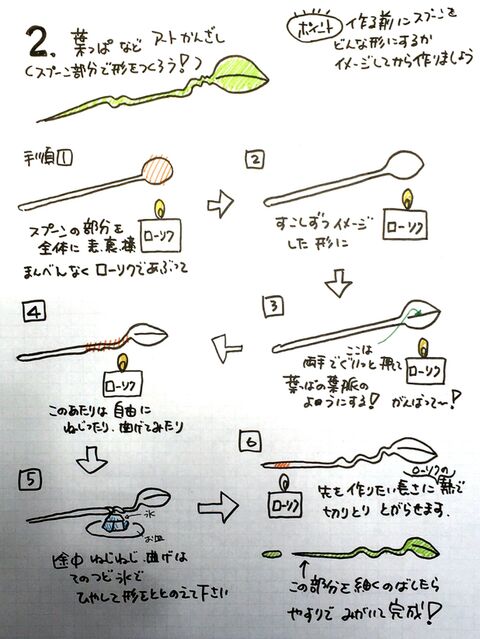 2. 葉っぱなど アートかんざし
(スプーン部分で形をつくろう!)
ポイント 作る前にスプーンを
どんな形にするか
イメージしてから作りましょう
手順①
スプーンの部分を
全体に 表、裏、横
まんべんなく ローソクであぶって
ローソク
2
すこしずつイメージ
した 形に
ローソク
3
ここは
両手でぐいっと 押して
葉っぱの葉脈の
ようにする! がんばって〜!
ローソク
4
ローソク
このあたりは 自由に
ねじったり、曲げてみたり
5
氷
お皿
途中 ねじねじ、曲げは
そのつど 氷で
ひやして形をととのえて下さい
6
ローソク
先を作りたい長さにローソクの熱で
切りとり とがらせます。
この部分を細くのばしたら
やすりで みがいて 完成!